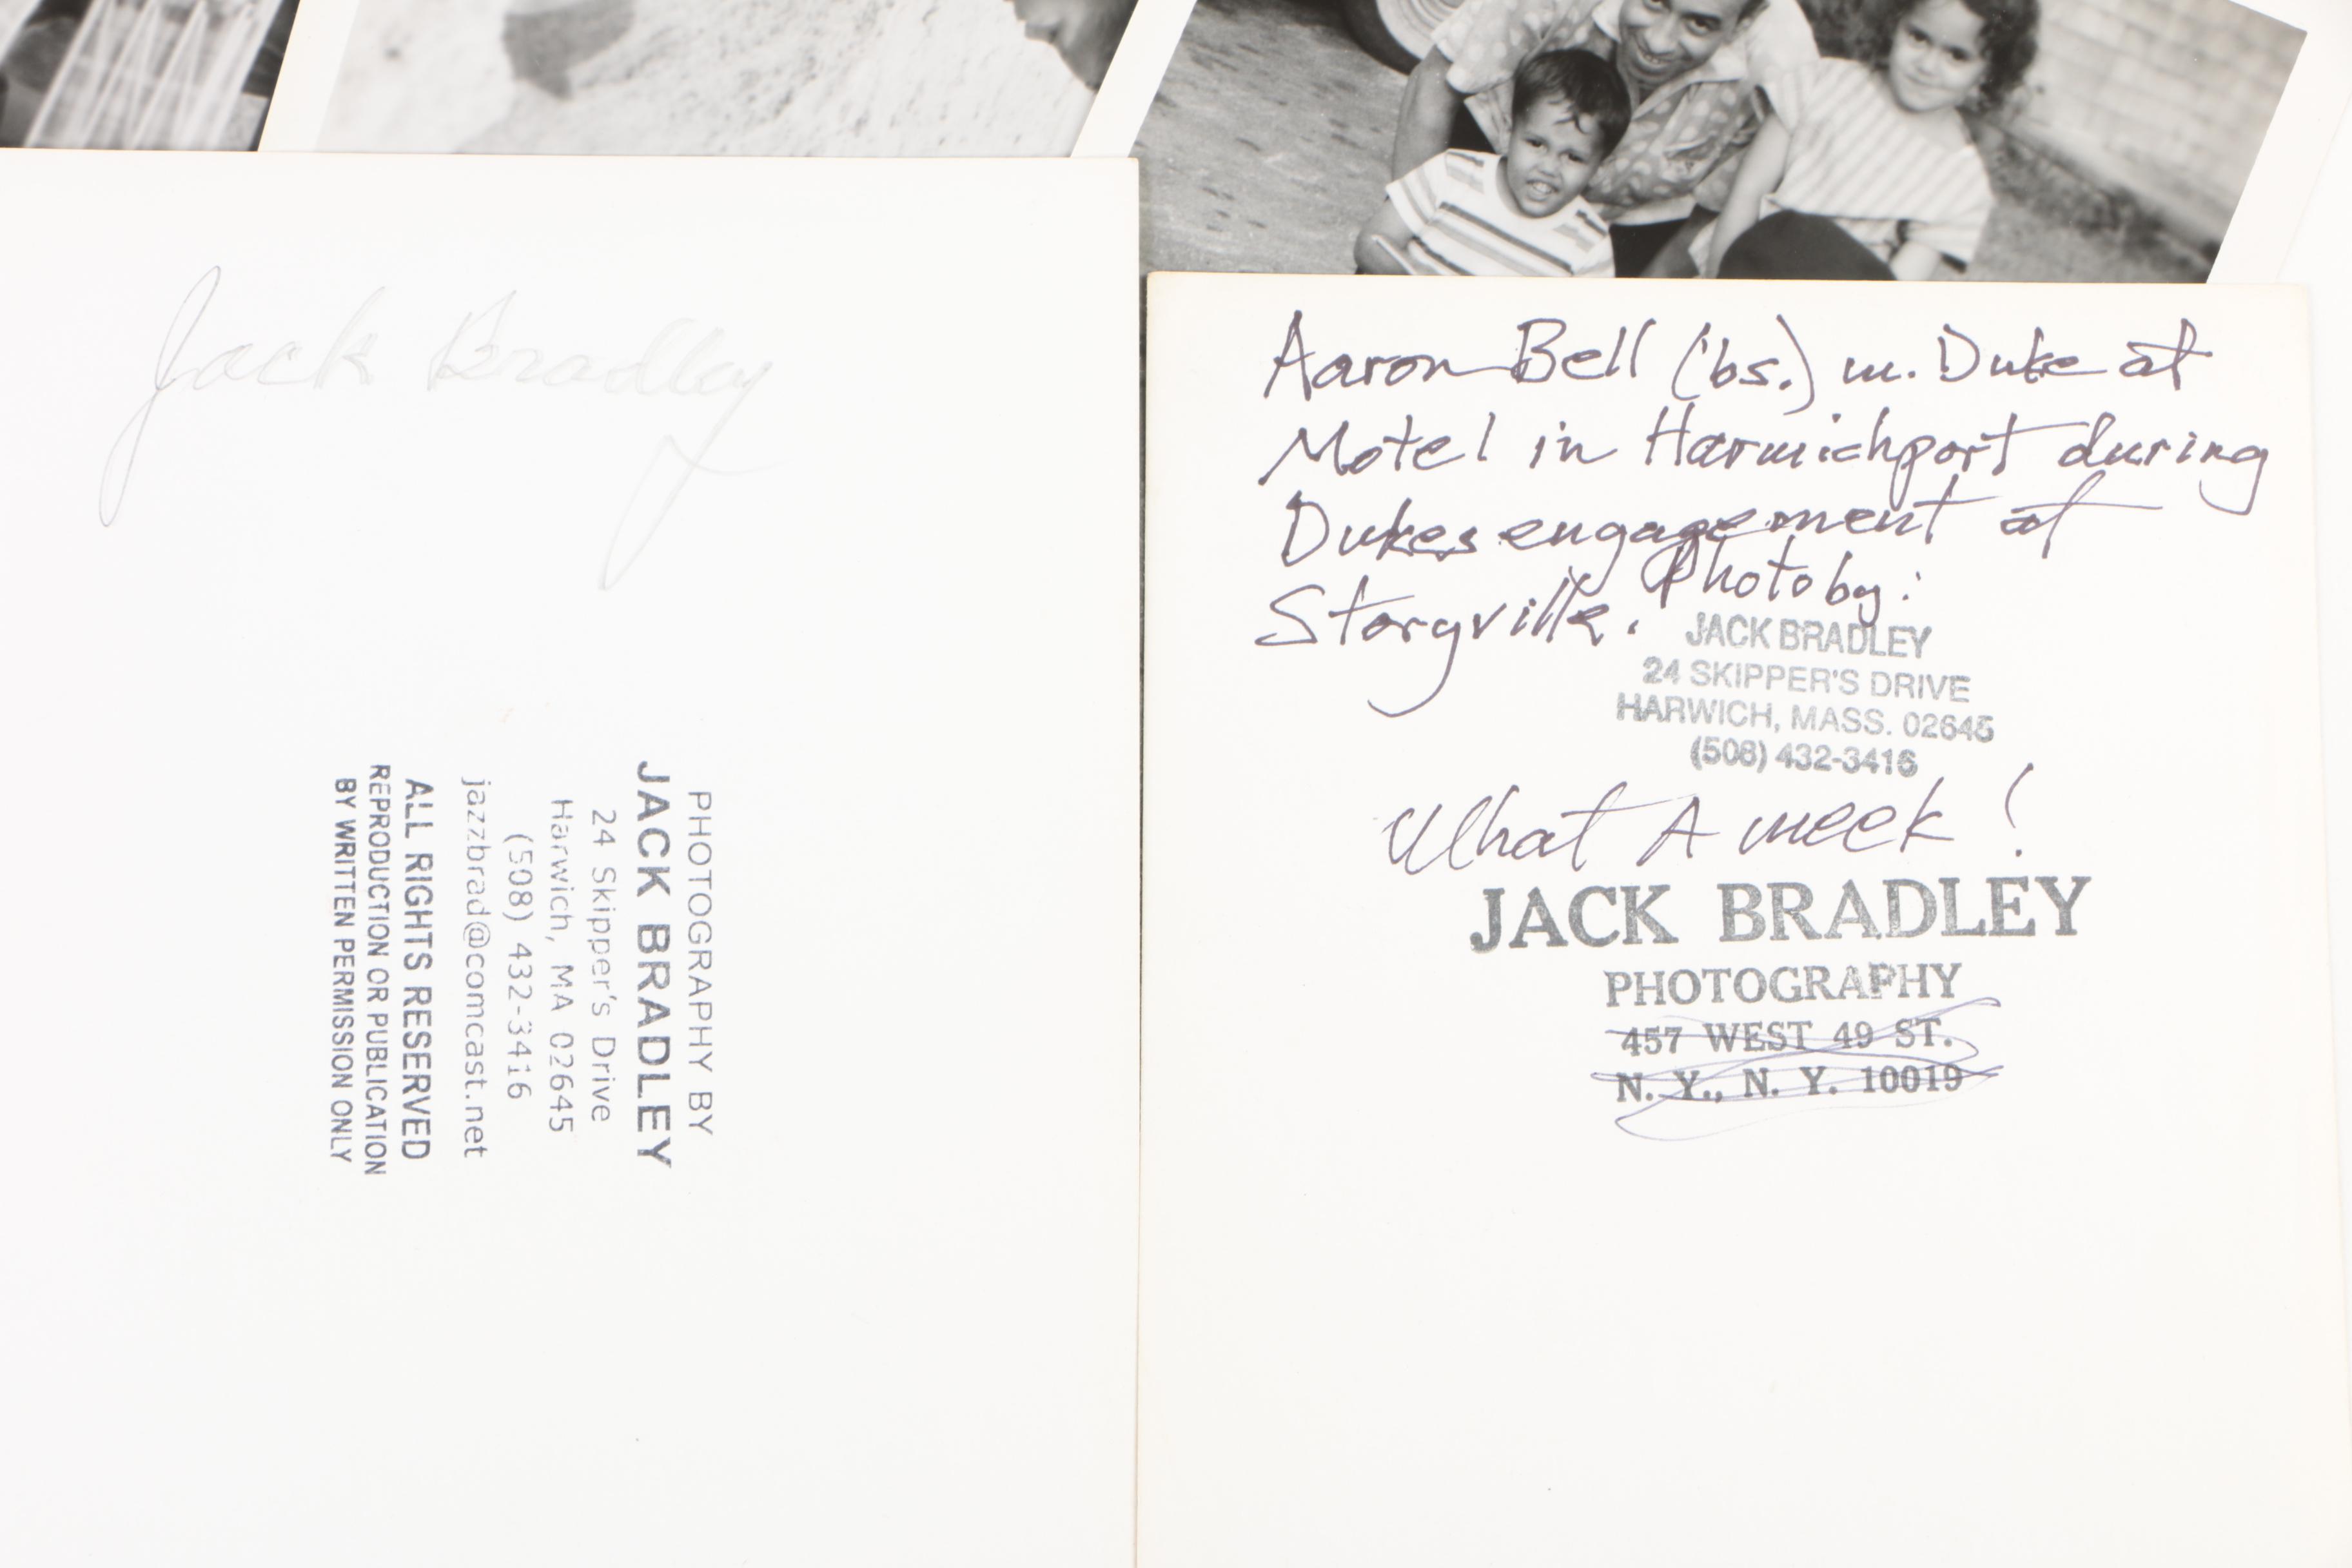 Jack Bradley
PHOTOGRAPHY BY
JACK BRADLEY
24 Skipper's Drive
Harwich, MA 02645
(508) 432-3416
jazzbrad@comcast.net
ALL RIGHTS RESERVED
REPRODUCTION OR PUBLICATION
BY WRITTEN PERMISSION ONLY
Aaron Bell (bs.) w. Duke at
Motel in Harwichport during
Dukes engagement at
Storyville. Photo by:
JACK BRADLEY
24 SKIPPER'S DRIVE
HARWICH, MASS. 02645
(508) 432-3416
What A week!
JACK BRADLEY
PHOTOGRAPHY
457 WEST 49 ST.
N. Y., N. Y. 10019